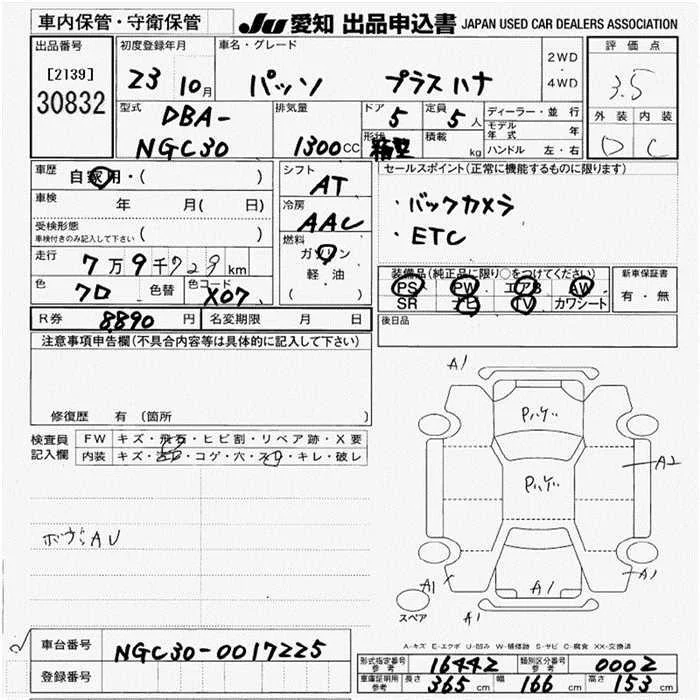 車内保管・守衛保管
JU 愛知 出品申込書 JAPAN USED CAR DEALERS ASSOCIATION
出品番号
[2139]
30832
初度登録年月
23 10月
車名・グレード
パッソ プラスハナ
2WD
・
4WD
評価点
3.5
外装 内装
D C
型式
DBA-
NGC30
排気量
1300cc
ドア
5
定員
5人
形状
箱型
積載
kg
ディーラー・並行
モデル年式 年
ハンドル 左・右
車歴
自家用・( )
車検
年 月( 日)
受検形態
車検付きのみ記入して下さい ( )
走行
7万9千729km
色
クロ
色替
色コード
X07
シフト
AT
冷房
AAC
燃料
ガソリン
軽・油
( )
セールスポイント(正常に機能するものに限ります)
・バックカメラ
・ETC
装備品(純正品に限り○をつけてください)
PS PW エアB AW
SR ナビ TV カワシート
新車保証書
有・無
後日品
R券 8890円 名変期限 月 日
注意事項申告欄(不具合内容等は具体的に記入して下さい)
修復歴 有(箇所 )
検査員
記入欄
FW キズ・飛石・ヒビ割・リペア跡・X要
内装 キズ・汚・コゲ・穴・スレ・キレ・破レ
A1
A2
A1
A1
A1
A1
スペア
A-キズ E-エクボ U-凹み W-補修跡 S-サビ C-腐食 XX-交換済
車台番号 NGC30-0017225
登録番号
形式指定番号
参考
16442
類別区分番号
参考
0002
車庫証明用
参考
長さ 365cm 幅 166cm 高さ 153cm